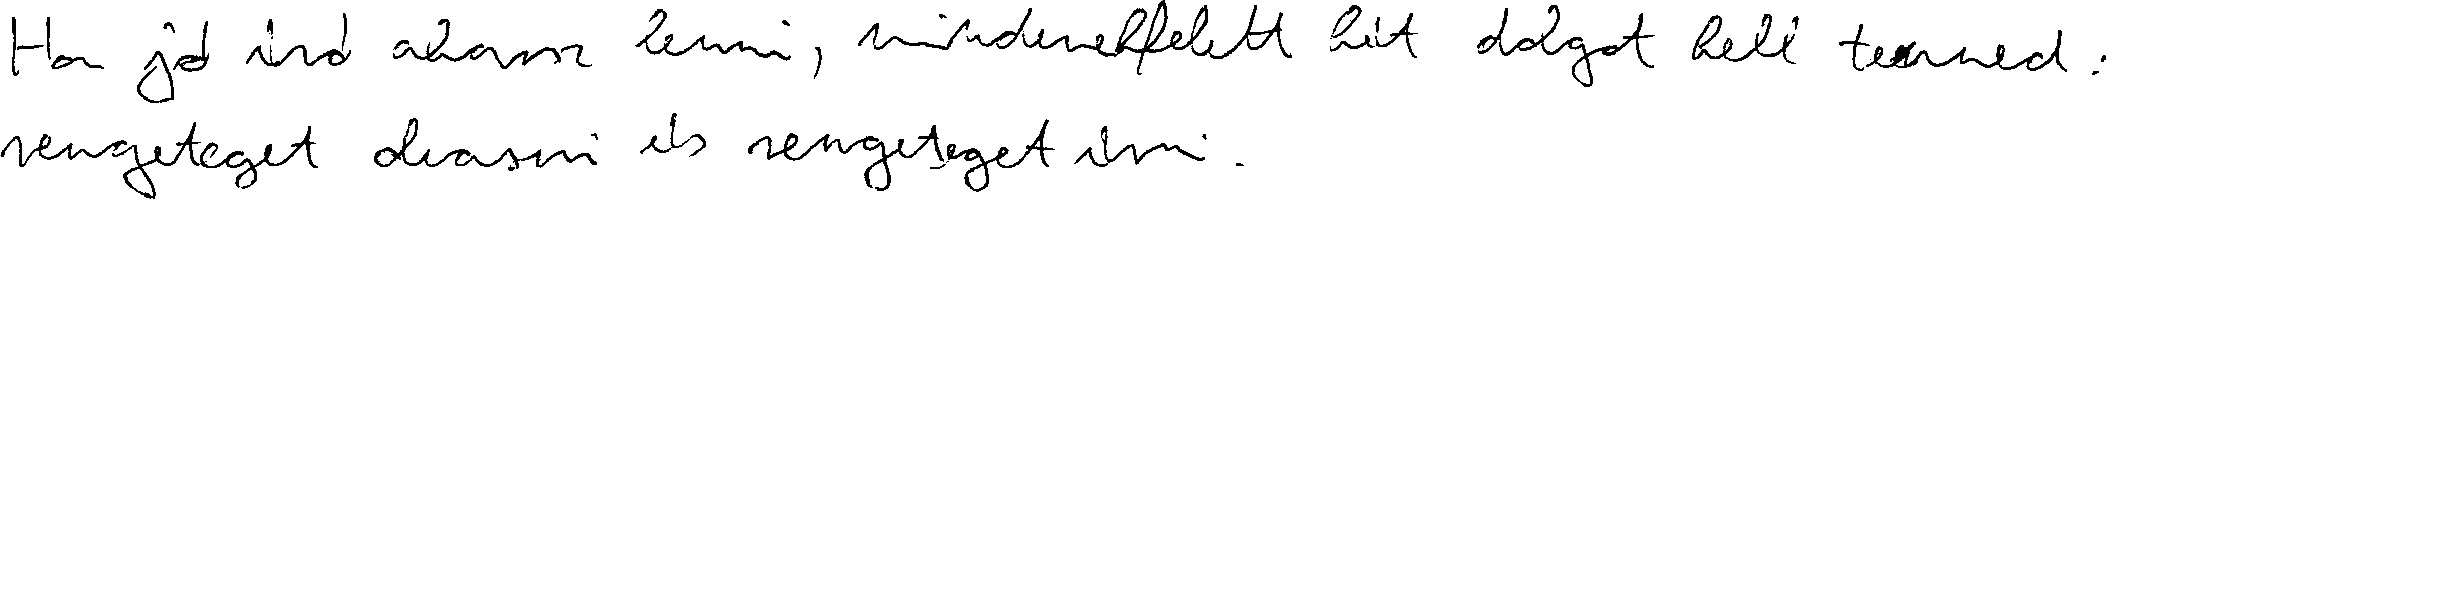 Ha jó író akarsz lenni, mindenekfelett két dolgot kell tenned:
rengeteget olvasni és rengeteget írni.